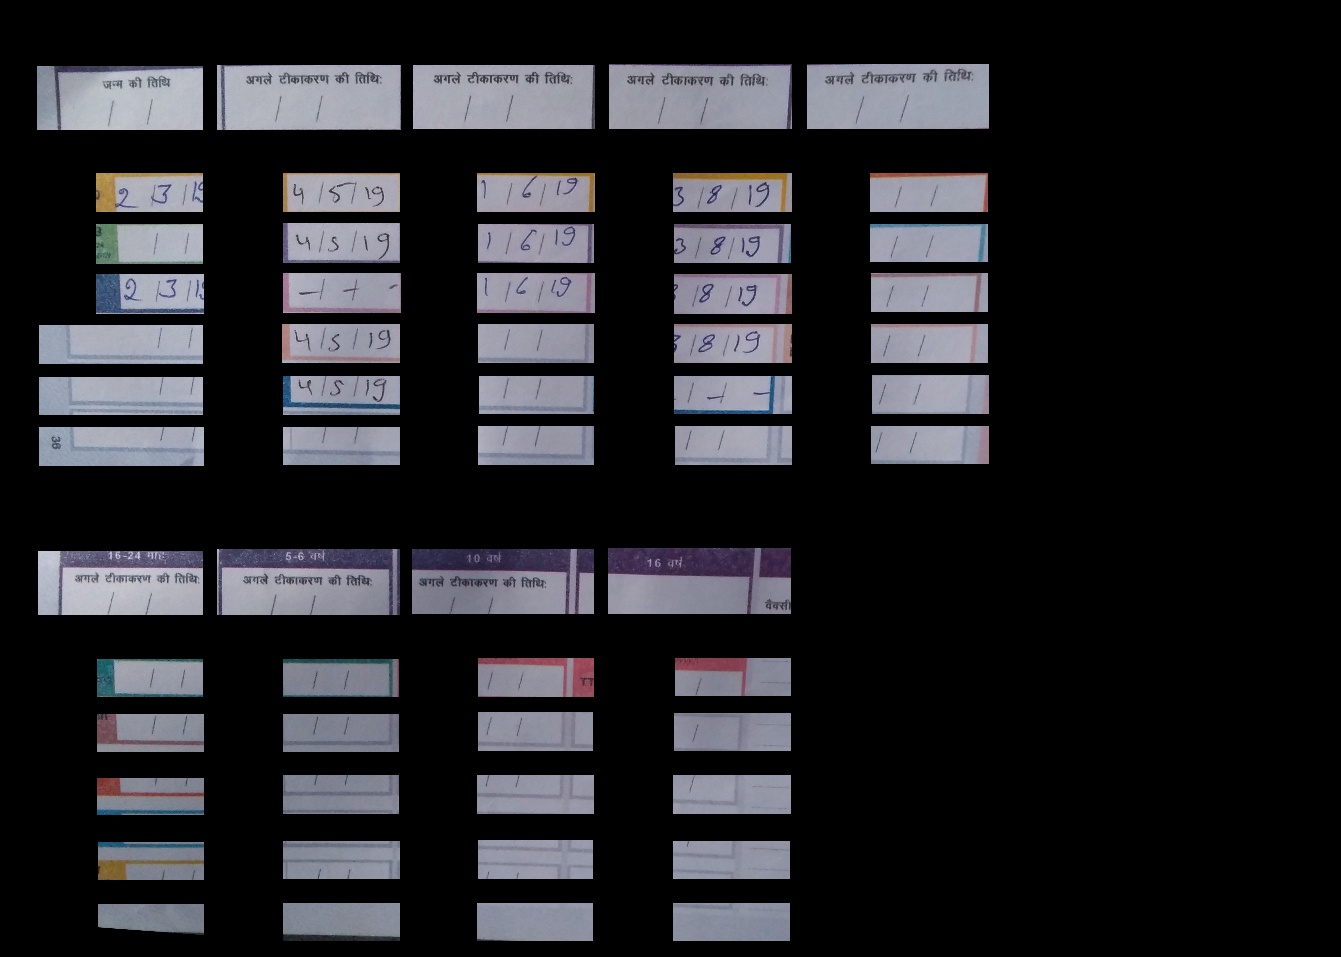 जन्म की तिथि अगले टीकाकरण की तिथि: अगले टीकाकरण की तिथि: अगले टीकाकरण की तिथि: अगले टीकाकरण की तिथि:
/ / / / / / / / / /
2 /3 /19 4 /5 /19 1 /6 /19 3 /8 /19 / /
/ / 4/5/19 1 /6/19 3/8/19 / /
2 /3/19 –/ + - 1 /6/19 /8/19 / /
/ / 4/5/19 / / 3/8/19 / /
/ / 4/5/19 / / / –/ – / /
36 / / / / / / / / / /
16-24 माह 5-6 वर्ष 10 वर्ष 16 वर्ष
अगले टीकाकरण की तिथि: अगले टीकाकरण की तिथि: अगले टीकाकरण की तिथि:
/ / / / / /
/ / / / / / TT /
/ / / / / / /
/ / / / / / /
/ / / / / /